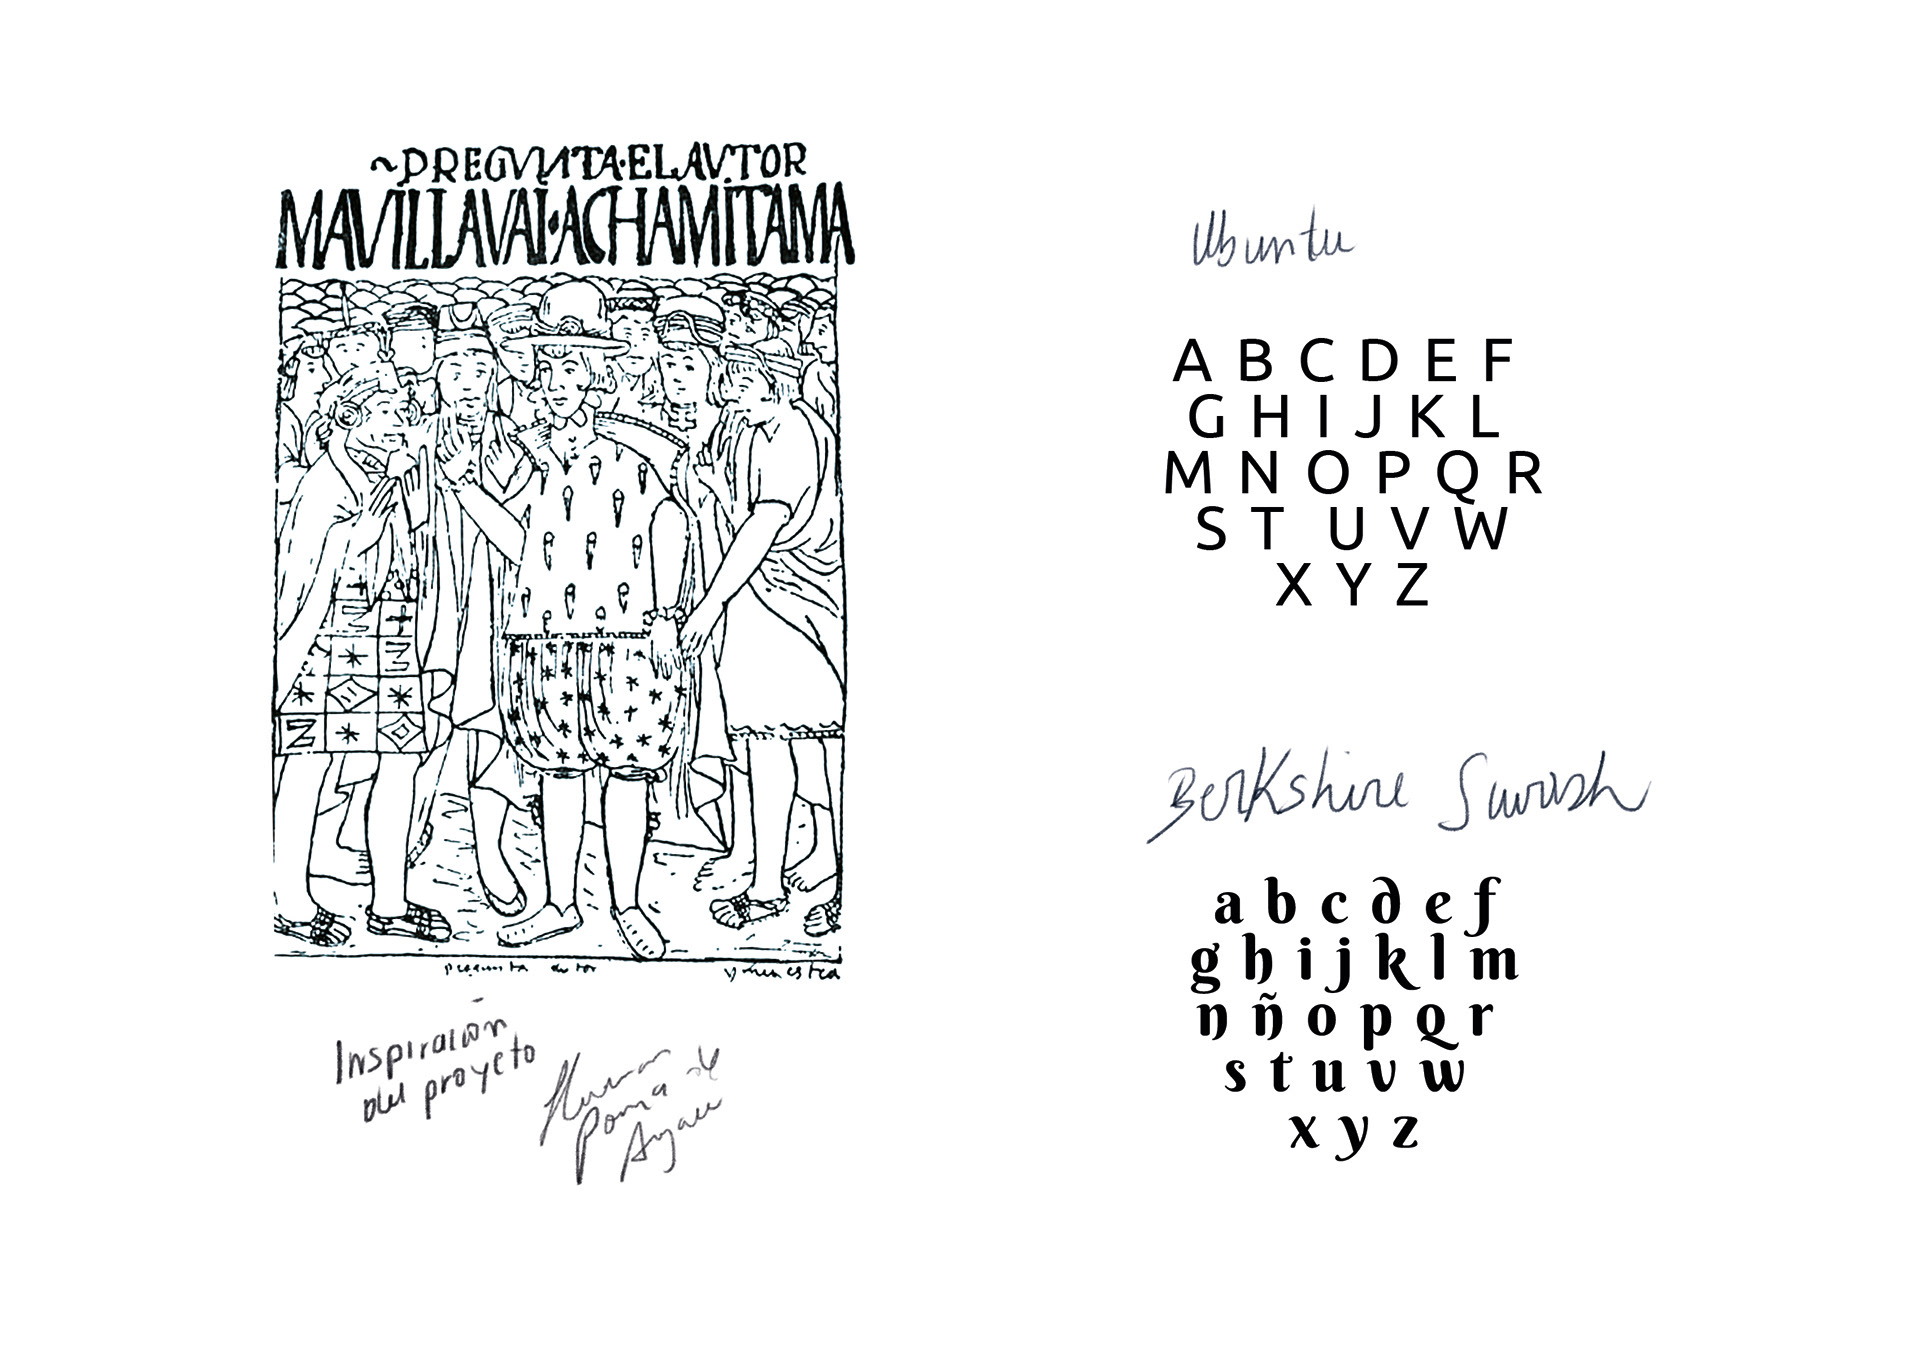 ~PREGVNTA·EL AVTOR
MAVILLAVAI·ACHAMITAMA
pregunta autor
Inspiración
del proyeto
Huaman
Poma de
Ayala
Ubuntu
A B C D E F
G H I J K L
M N O P Q R
S T U V W
X Y Z
Berkshire Swash
a b c d e f
g h i j k l m
n ñ o p q r
s t u v w
x y z